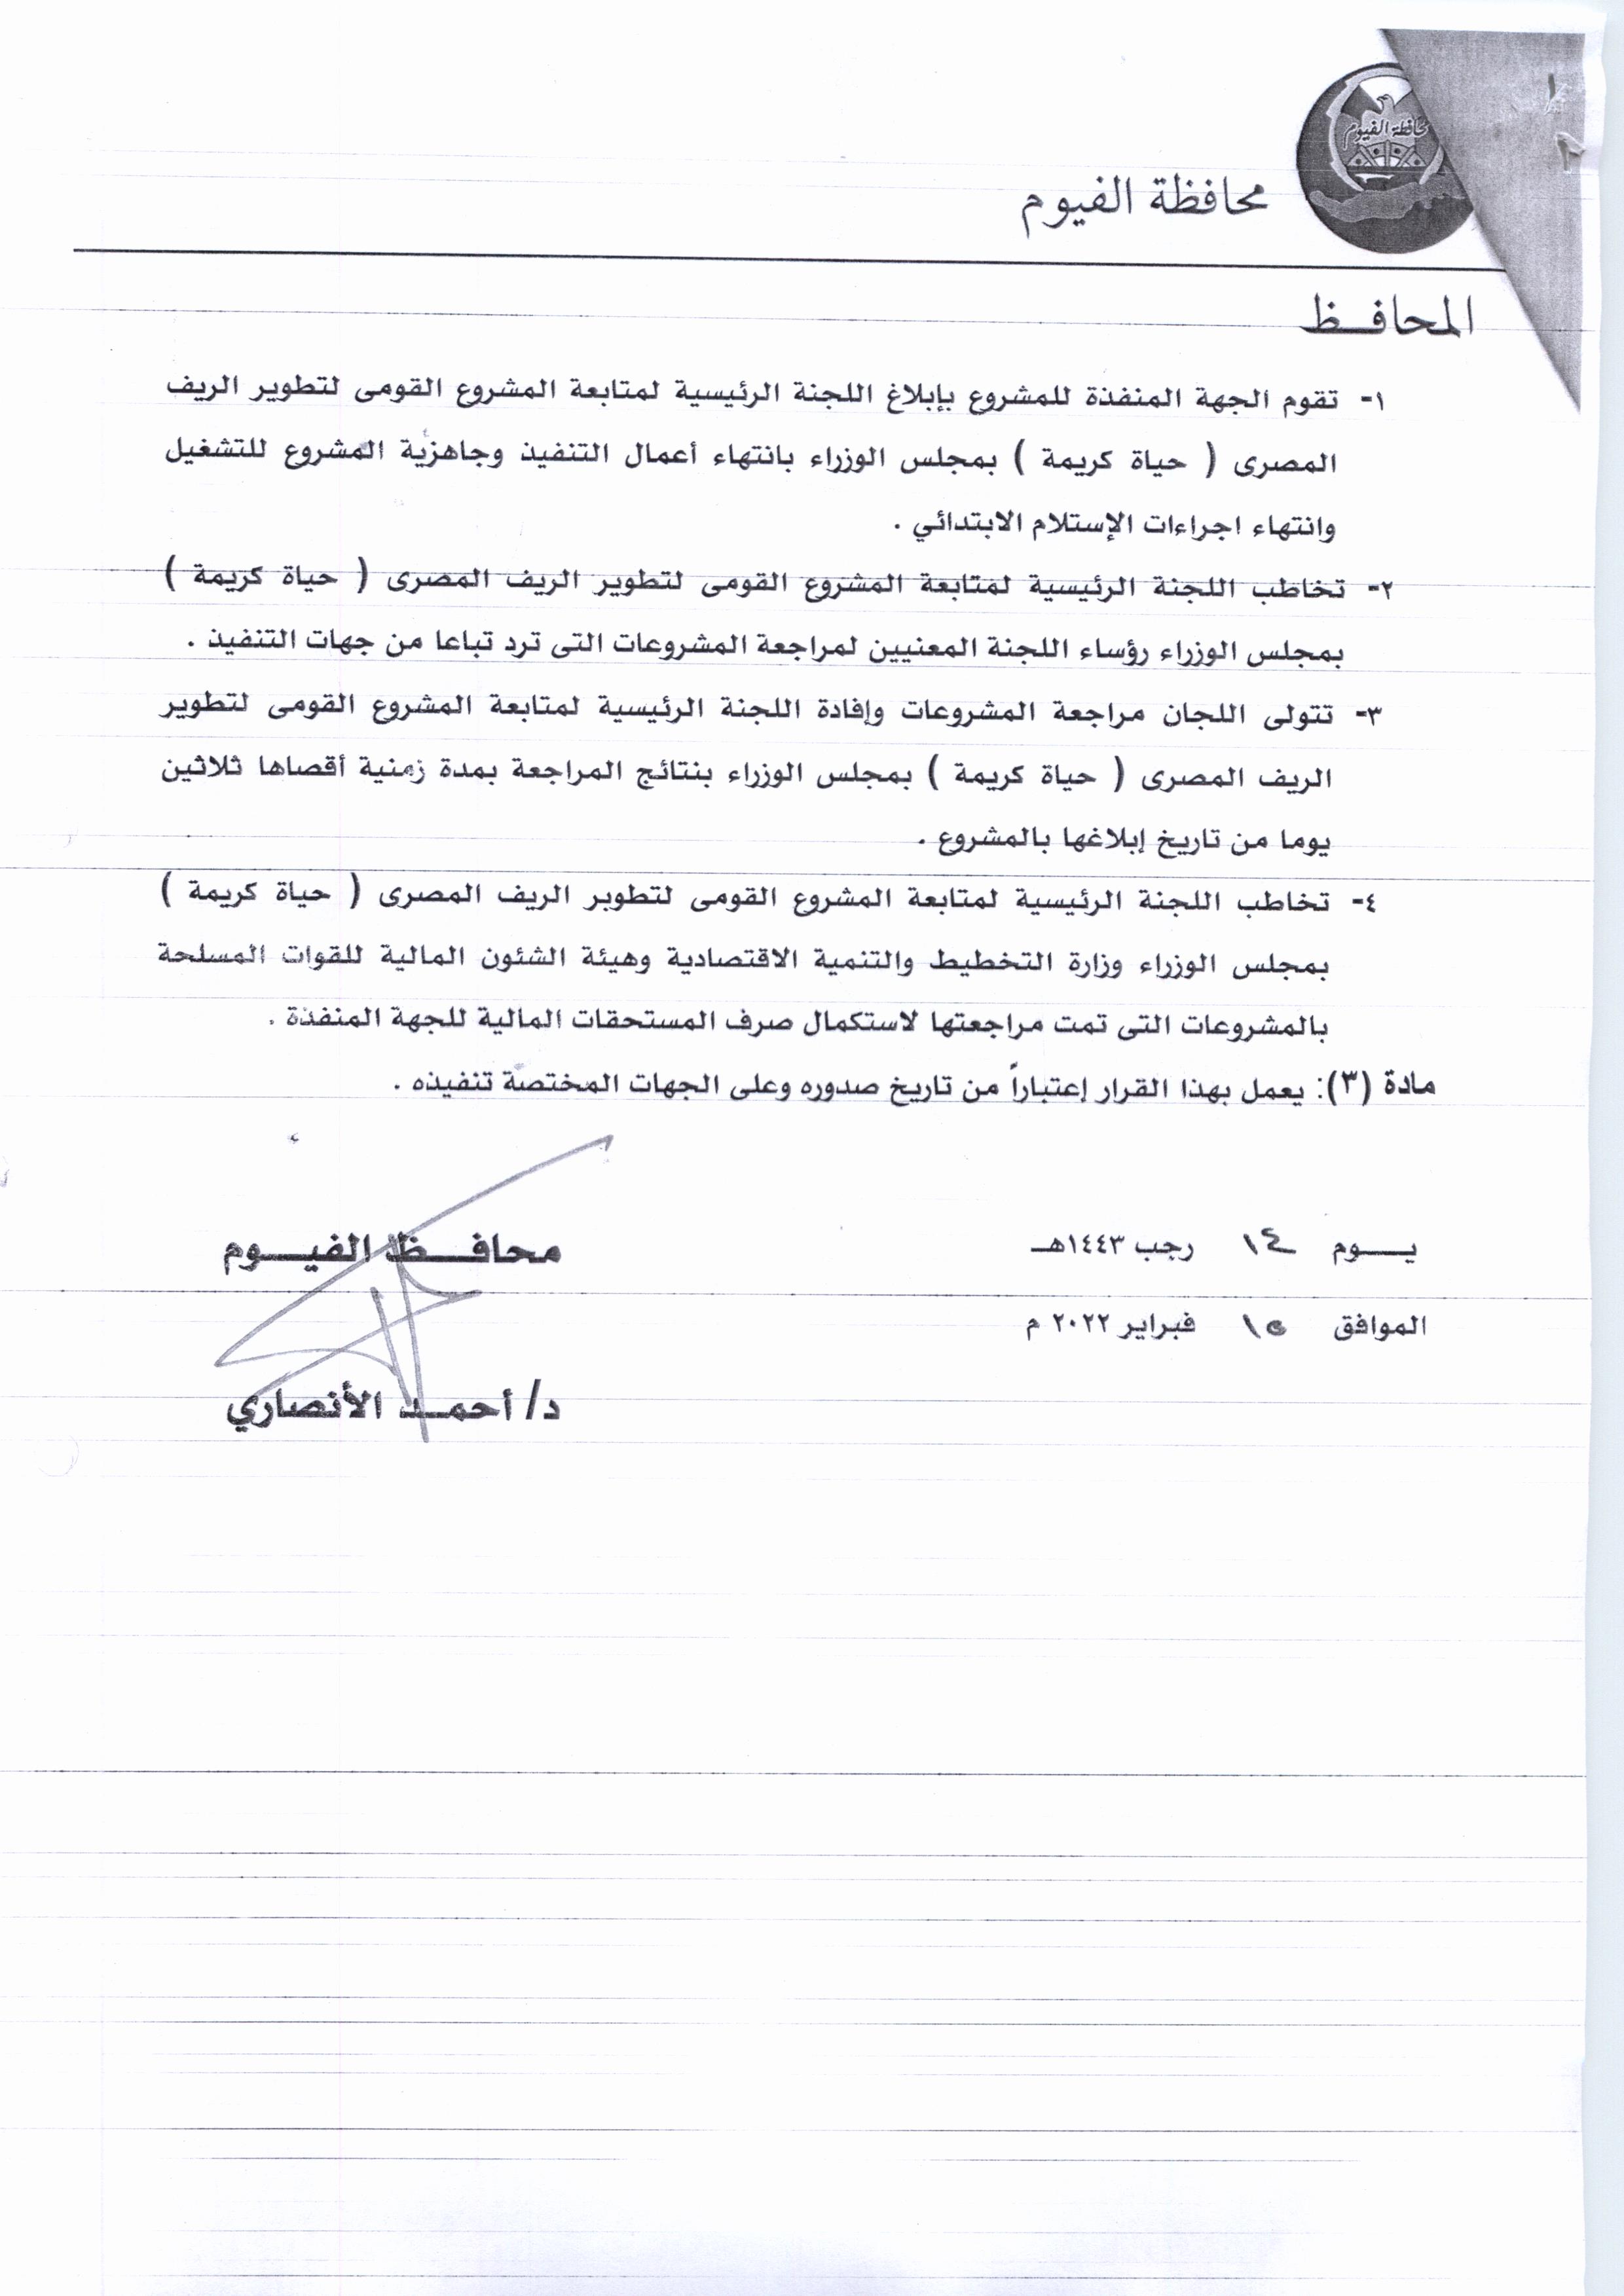 محافظة الفيوم
محافظة الفيوم
المحافـظ
١- تقوم الجهة المنفذة للمشروع بإبلاغ اللجنة الرئيسية لمتابعة المشروع القومى لتطوير الريف
المصرى ( حياة كريمة ) بمجلس الوزراء بانتهاء أعمال التنفيذ وجاهزية المشروع للتشغيل
وانتهاء اجراءات الإستلام الابتدائي .
٢- تخاطب اللجنة الرئيسية لمتابعة المشروع القومى لتطوير الريف المصرى ( حياة كريمة )
بمجلس الوزراء رؤساء اللجنة المعنيين لمراجعة المشروعات التى ترد تباعا من جهات التنفيذ .
٣- تتولى اللجان مراجعة المشروعات وإفادة اللجنة الرئيسية لمتابعة المشروع القومى لتطوير
الريف المصرى ( حياة كريمة ) بمجلس الوزراء بنتائج المراجعة بمدة زمنية أقصاها ثلاثين
يوما من تاريخ إبلاغها بالمشروع .
٤- تخاطب اللجنة الرئيسية لمتابعة المشروع القومى لتطوير الريف المصرى ( حياة كريمة )
بمجلس الوزراء وزارة التخطيط والتنمية الاقتصادية وهيئة الشئون المالية للقوات المسلحة
بالمشروعات التى تمت مراجعتها لاستكمال صرف المستحقات المالية للجهة المنفذة .
مادة (٣): يعمل بهذا القرار إعتباراً من تاريخ صدوره وعلى الجهات المختصة تنفيذه .
يـــوم ١٤ رجب ١٤٤٣هـ
الموافق ١٥ فبراير ٢٠٢٢ م
محافـــظ الفيـــوم
د/ أحمـد الأنصاري